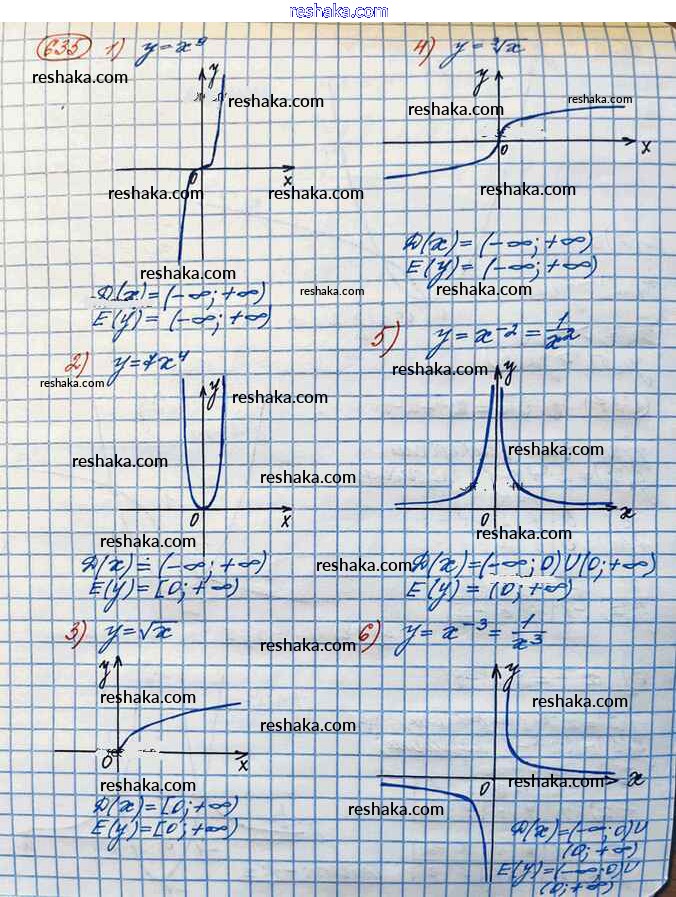 reshaka.com
635 1) y = x⁹
reshaka.com
y
reshaka.com
0 x
reshaka.com reshaka.com
reshaka.com
D(x) = (-∞; +∞)
reshaka.com
E(y) = (-∞; +∞)
2) y = 7x⁴
reshaka.com
y
reshaka.com
reshaka.com
reshaka.com
0 x
reshaka.com
D(x) = (-∞; +∞)
reshaka.com
E(y) = [0; +∞)
3) y = √x
reshaka.com
y
reshaka.com
reshaka.com
0 x
reshaka.com
D(x) = [0; +∞)
E(y) = [0; +∞)
4) y = √x
y
reshaka.com
reshaka.com
0 x
reshaka.com
D(x) = (-∞; +∞)
E(y) = (-∞; +∞)
reshaka.com
5) y = x⁻² = 1/x²
reshaka.com
y
reshaka.com
0 x
reshaka.com
D(x) = (-∞; 0)U(0; +∞)
E(y) = (0; +∞)
6) y = x⁻³ = 1/x³
y
reshaka.com
0 x
reshaka.com
reshaka.com
D(x) = (-∞; 0)U
(0; +∞)
reshaka.com
E(y) = (-∞; 0)U
(0; +∞)